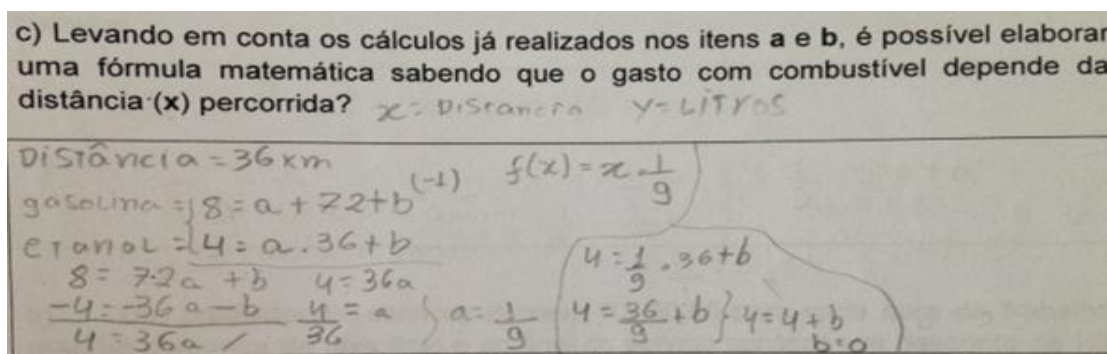 c) Levando em conta os cálculos já realizados nos itens a e b, é possível elaborar
uma fórmula matemática sabendo que o gasto com combustível depende da
distância (x) percorrida? x = Distancia y = LITYOS
Distância = 36 km
gasolina = { 8 = a + 72 + b (-1)
etanol = { 4 = a . 36 + b
8 = 72a + b
-4 = -36a - b
4 = 36a
4 = 36a
4/36 = a } a = 1/9
f(x) = x . 1/9
4 = 1/9 . 36 + b
4 = 36/9 + b } 4 = 4 + b
b = 0